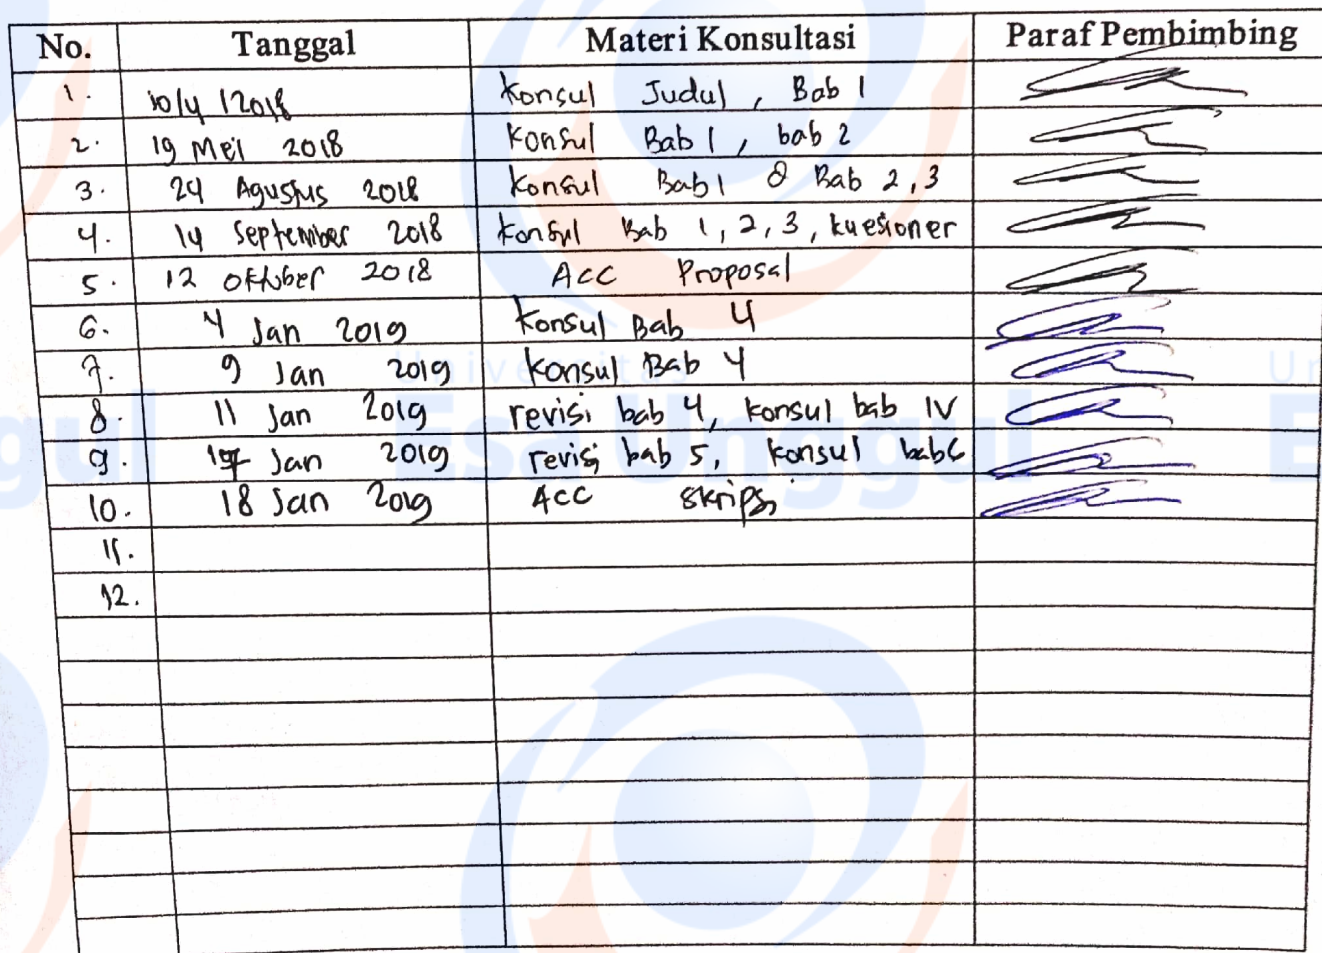 No. Tanggal Materi Konsultasi Paraf Pembimbing
1. 10/4/2018 Konsul Judul, Bab 1
2. 19 Mei 2018 Konsul Bab 1, bab 2
3. 24 Agustus 2018 Konsul Bab 1 & Bab 2,3
4. 14 September 2018 Konsul Bab 1, 2, 3, kuesioner
5. 12 Oktober 2018 ACC Proposal
6. 4 Jan 2019 Konsul Bab 4
7. 9 Jan 2019 Konsul Bab 4
8. 11 Jan 2019 revisi bab 4, konsul bab IV
9. Jan 2019 revisi bab 5, konsul bab 6
10. 18 Jan 2019 ACC skripsi
11.
12.
Universitas
Esa Unggul